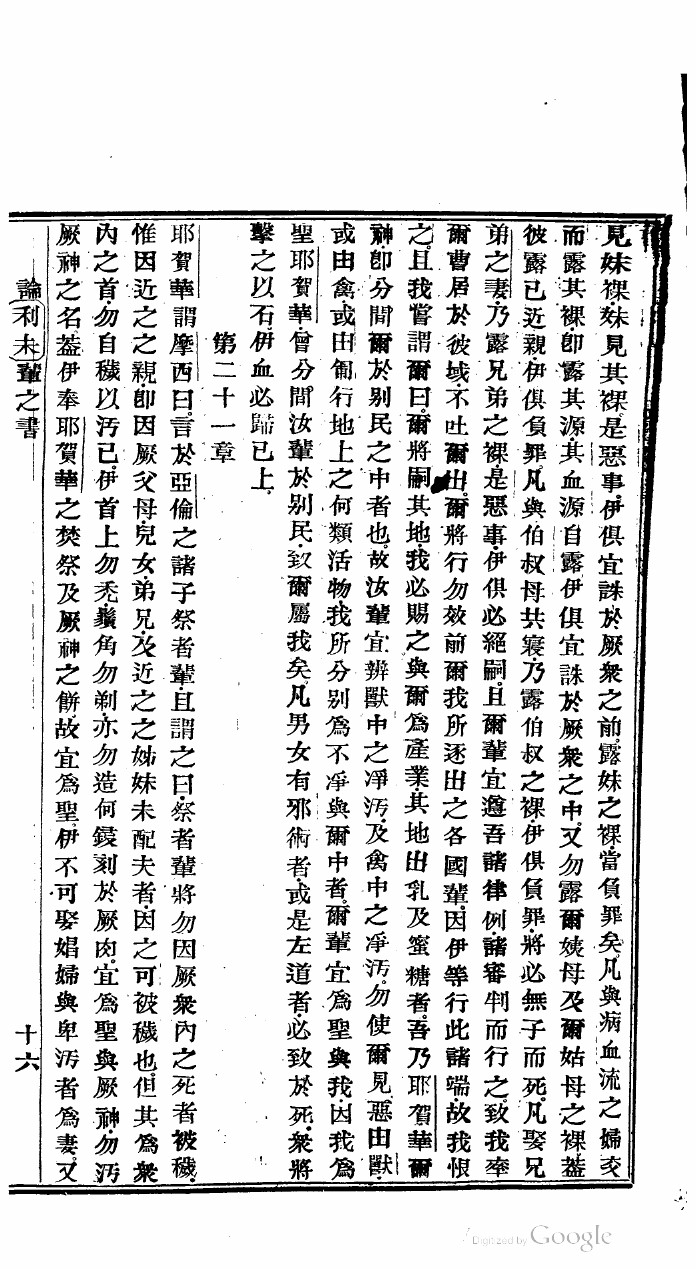 見妹裸妹見其裸是惡事伊俱宜誅於厥衆之前露妹之裸當負罪矣凡與病血流之婦交
而露其裸卽露其源其血源自露伊俱宜誅於厥衆之中又勿露爾姨母及爾姑母之裸蓋
彼露已近親伊俱負罪凡與伯叔母共寢乃露伯叔之裸伊俱負罪將必無子而死凡娶兄
弟之妻乃露兄弟之裸是惡事伊俱必絕嗣且爾輩宜遵吾諸律例諸審判而行之致我奉
爾曹居於彼域不吐爾出爾將行勿效前爾我所逐出之各國輩因伊等行此諸端故我恨
之且我嘗謂爾曰爾將嗣其地我必賜之與爾爲產業其地出乳及蜜糖者吾乃耶賀華爾
神卽分間爾於別民之中者也故汝輩宜辨獸中之凈汚及禽中之凈汚勿使爾見惡由獸
或由禽或由匍行地上之何類活物我所分别爲不凈與爾中者爾輩宜爲聖與我因我爲
聖耶賀華曾分間汝輩於别民致爾屬我矣凡男女有邪術者或是左道者必致於死衆將
擊之以石伊血必歸已上
第二十一章
耶賀華謂摩西曰言於亞倫之諸子祭者輩且謂之曰祭者輩將勿因厥衆內之死者被穢
惟因近之之親卽因厥父母兒女弟兄及近之之姊妹未配夫者因之可被穢也但其爲衆
內之首勿自穢以汚已伊首上勿禿鬚角勿剃亦勿造何鏤刻於厥肉宜爲聖與厥神勿汚
厥神之名蓋伊奉耶賀華之焚祭及厥神之餅故宜爲聖伊不可娶娼婦與卑汚者爲妻又
論利未輩之書 十六
Digitized by Google